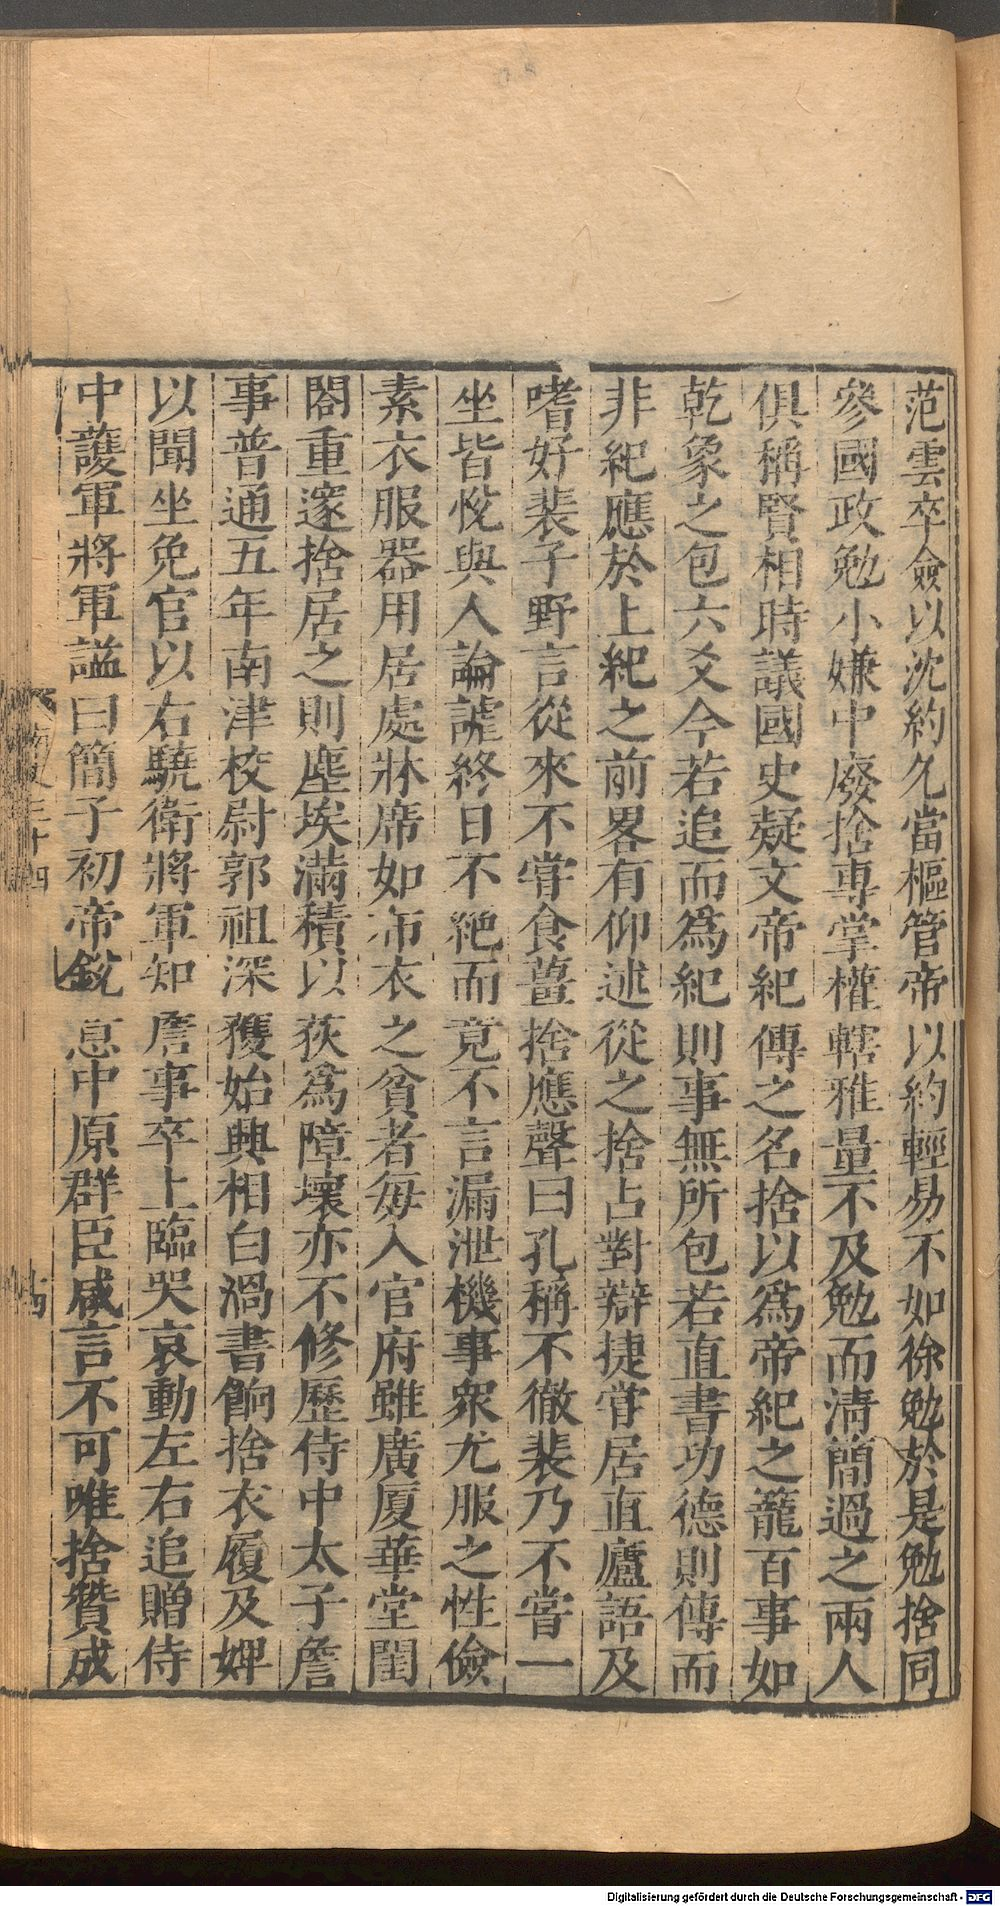 范雲卒僉以沈約允當樞管帝以約輕易不如徐勉於是勉捨同
參國政勉小嫌中廢捨專掌權轄雅量不及勉而清簡過之兩人
俱稱賢相時議國史疑文帝紀傳之名捨以爲帝紀之籠百事如
乾象之包六爻今若追而爲紀則事無所包若直書功德則傳而
非紀應於上紀之前畧有仰述從之捨占對辯捷嘗居直廬語及
嗜好裴子野言從來不嘗食薑捨應聲曰孔稱不徹裴乃不嘗一
坐皆悅與人論謔終日不絕而竟不言漏泄機事衆尤服之性儉
素衣服器用居處牀席如布衣之貧者每入官府雖廣厦華堂閨
閤重邃捨居之則塵埃滿積以荻爲障壞亦不修歷侍中太子詹
事普通五年南津校尉郭祖深獲始興相白渦書餉捨衣履及婢
以聞坐免官以右驍衛將軍知詹事卒上臨哭哀動左右追贈侍
中護軍將軍謚曰簡子初帝銳意中原群臣咸言不可唯捨贊成
Digitalisierung gefördert durch die Deutsche Forschungsgemeinschaft - DFG